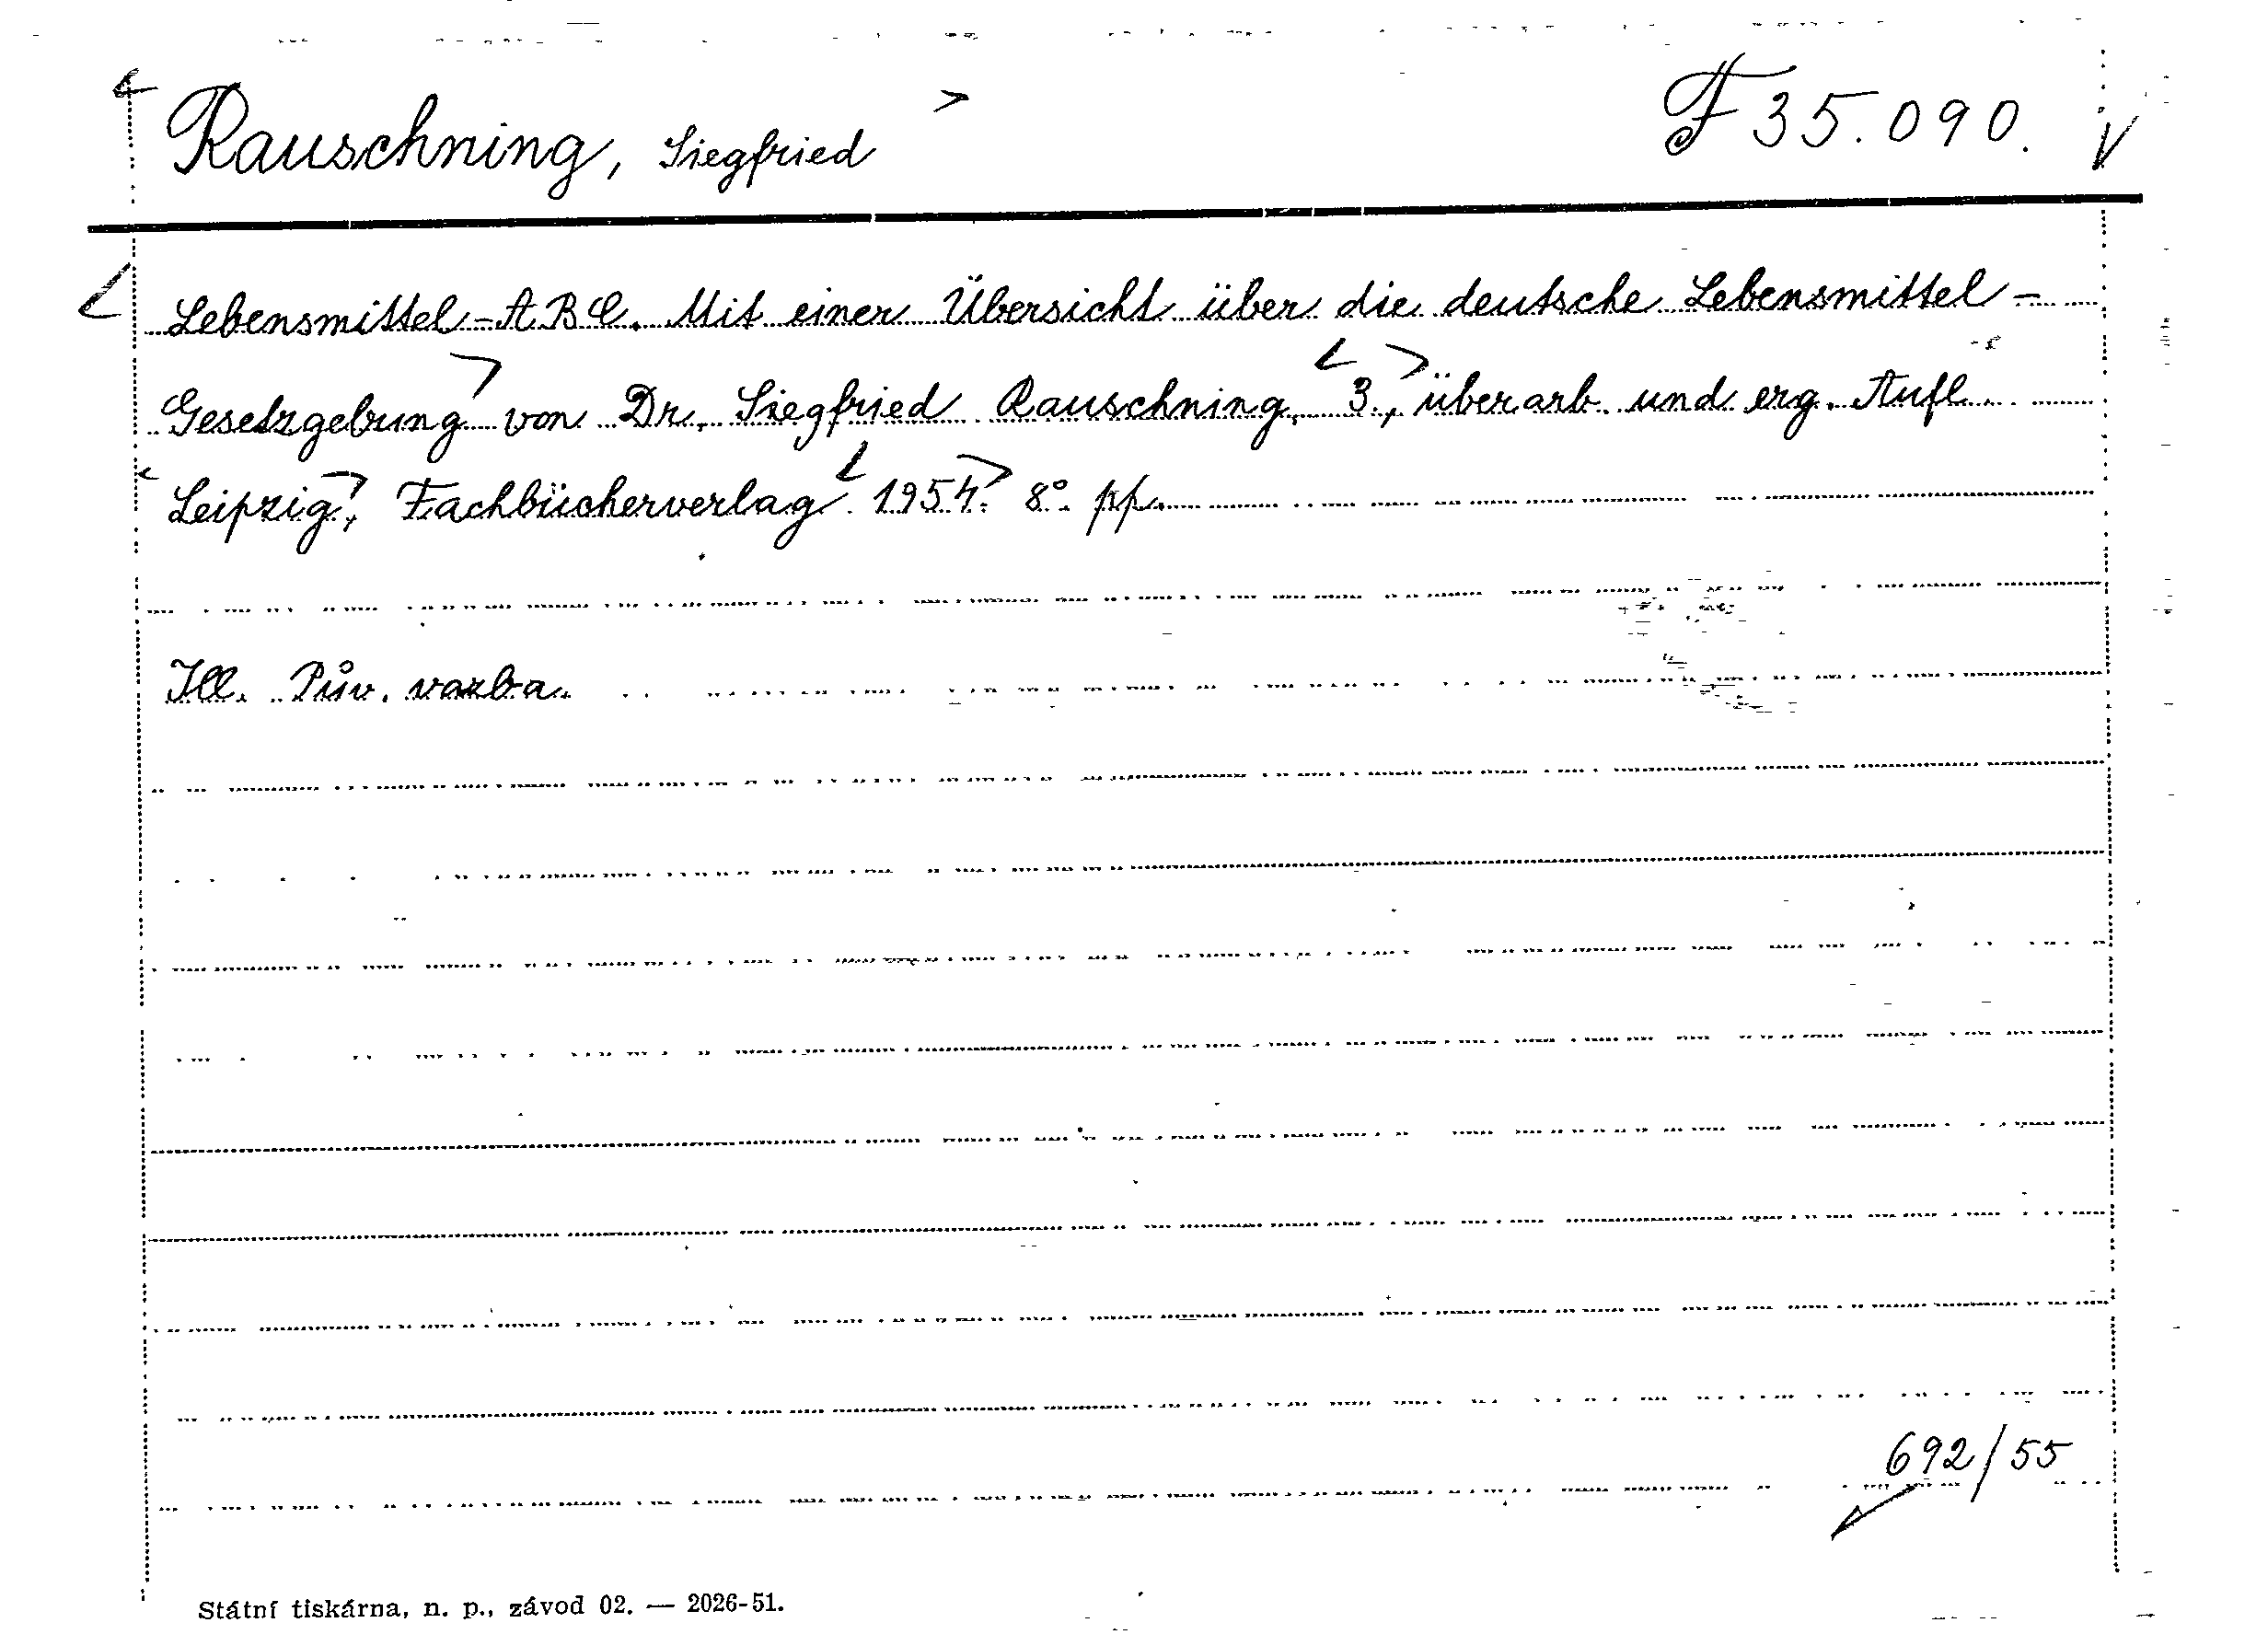 Rauschning, Siegfried F 35.090.
Lebensmittel-ABC. Mit einer Übersicht über die deutsche Lebensmittel-
Gesetzgebung von Dr. Siegfried Rauschning. 3., überarb. und erg. Aufl.
Leipzig, Fachbücherverlag 1954. 8°. pp.
Ill. Pův. vazba.
692/55
Státní tiskárna, n. p., závod 02. — 2026-51.